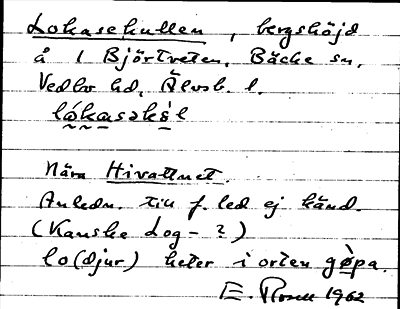 Lokasekullen, bergshöjd
å 1 Björtveten, Bäcke sn,
Vedbo hd, Älvsb. l.
lókasəks̀l
Nära Hivattnet.
Anledn. till f. led ej känd.
(Kanske Log- ?)
lo (djur) heter i orten gø̀pa.
E. Rosell 1962